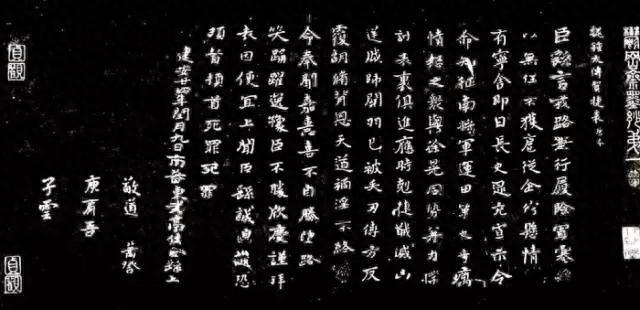 臣繇言戎路兼行履險冒寒臣
以無任不獲扈從企佇懸情無
有寧舍即日長史逯充宣示令
命知征南將軍運田單之奇厲
憤怒之眾與徐晃同勢并力撲
討表裏俱進應時剋捷馘滅凶
逆賊帥關羽已被矢刃傅方反
覆胡脩背恩天道禍淫不終厥
命奉聞嘉憙喜不自勝望路載
笑踊躍逸豫臣不勝欣慶謹拜
表因便宜上聞臣繇誠惶誠恐
頓首頓首死罪死罪
建安廿四年閏月九日南蕃東武亭侯臣繇上
敬道
庾肩吾
子雲
貞觀
貞觀